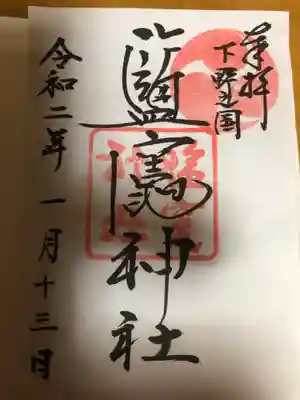 奉拝
下野之国
鹽竈神社
令和二年一月十三日